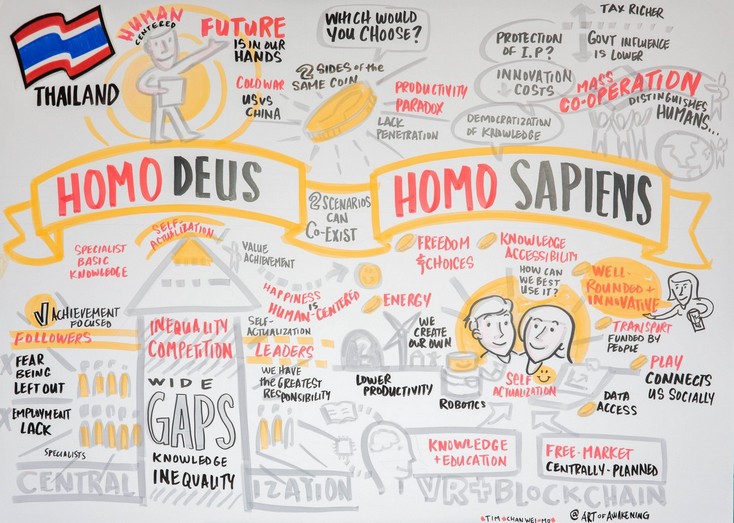 THAILAND
HUMAN
CENTERED
FUTURE
IS IN OUR
HANDS
COLD WAR
US VS
CHINA
WHICH WOULD
YOU CHOOSE?
2 SIDES of the
SAME COIN
PRODUCTIVITY
PARADOX
LACK
PENETRATION
PROTECTION
OF I.P?
INNOVATION
COSTS
DEMOCRATIZATION
OF KNOWLEDGE
TAX RICHER
GOVT INFLUENCE
IS LOWER
MASS
CO-OPERATION
DISTINGUISHES
HUMANS...
HOMO DEUS
2 SCENARIOS
CAN
Co-EXIST
HOMO SAPIENS
SPECIALIST
BASIC
KNOWLEDGE
SELF-
ACTUALIZATION
VALUE
ACHIEVEMENT
HAPPINESS
IS
HUMAN-CENTERED
ACHIEVEMENT
FOCUSED
FOLLOWERS
FEAR
BEING
LEFT OUT
EMPLOYMENT
LACK
SPECIALISTS
INEQUALITY
COMPETITION
WIDE
GAPS
KNOWLEDGE
INEQUALITY
SELF-
ACTUALIZATION
LEADERS
WE HAVE
the GREATEST
RESPONSIBILITY
CENTRAL IZATION
FREEDOM
& CHOICES
KNOWLEDGE
ACCESSIBILITY
HOW CAN
WE BEST
USE IT?
ENERGY
WE
CREATE
OUR OWN
LOWER
PRODUCTIVITY
ROBOTICS
SELF
ACTUALIZATION
WELL-
ROUNDED +
INNOVATIVE
TRANSPORT
FUNDED BY
PEOPLE
PLAY
CONNECTS
US SOCIALLY
DATA
ACCESS
KNOWLEDGE
+ EDUCATION
FREE-MARKET
CENTRALLY-PLANNED
VR+BLOCKCHAIN
TIM CHAN WEI MO
@ART OF AWAKENING